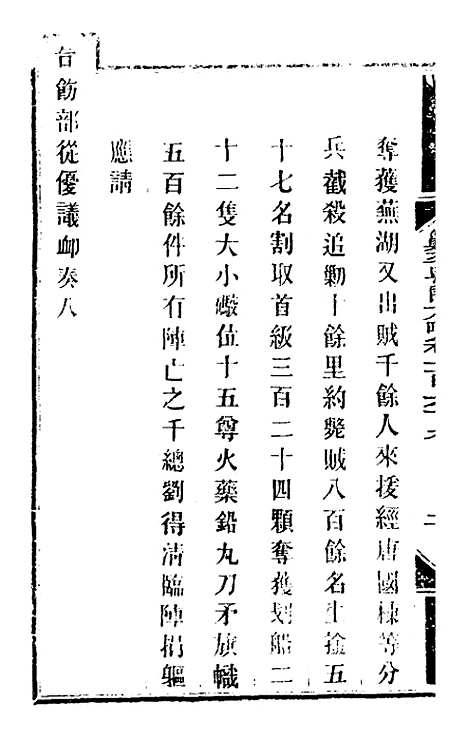 奪獲蕪湖又出賊千餘人來援經唐國棟等分
兵截殺追勦十餘里約斃賊八百餘名生擒五
十七名割取首級三百二十四顆奪獲划船二
十二隻大小礮位十五尊火藥鉛丸刀矛旗幟
五百餘件所有陣亡之千總劉得清臨陣捐軀
應請
旨飭部從優議卹奏入